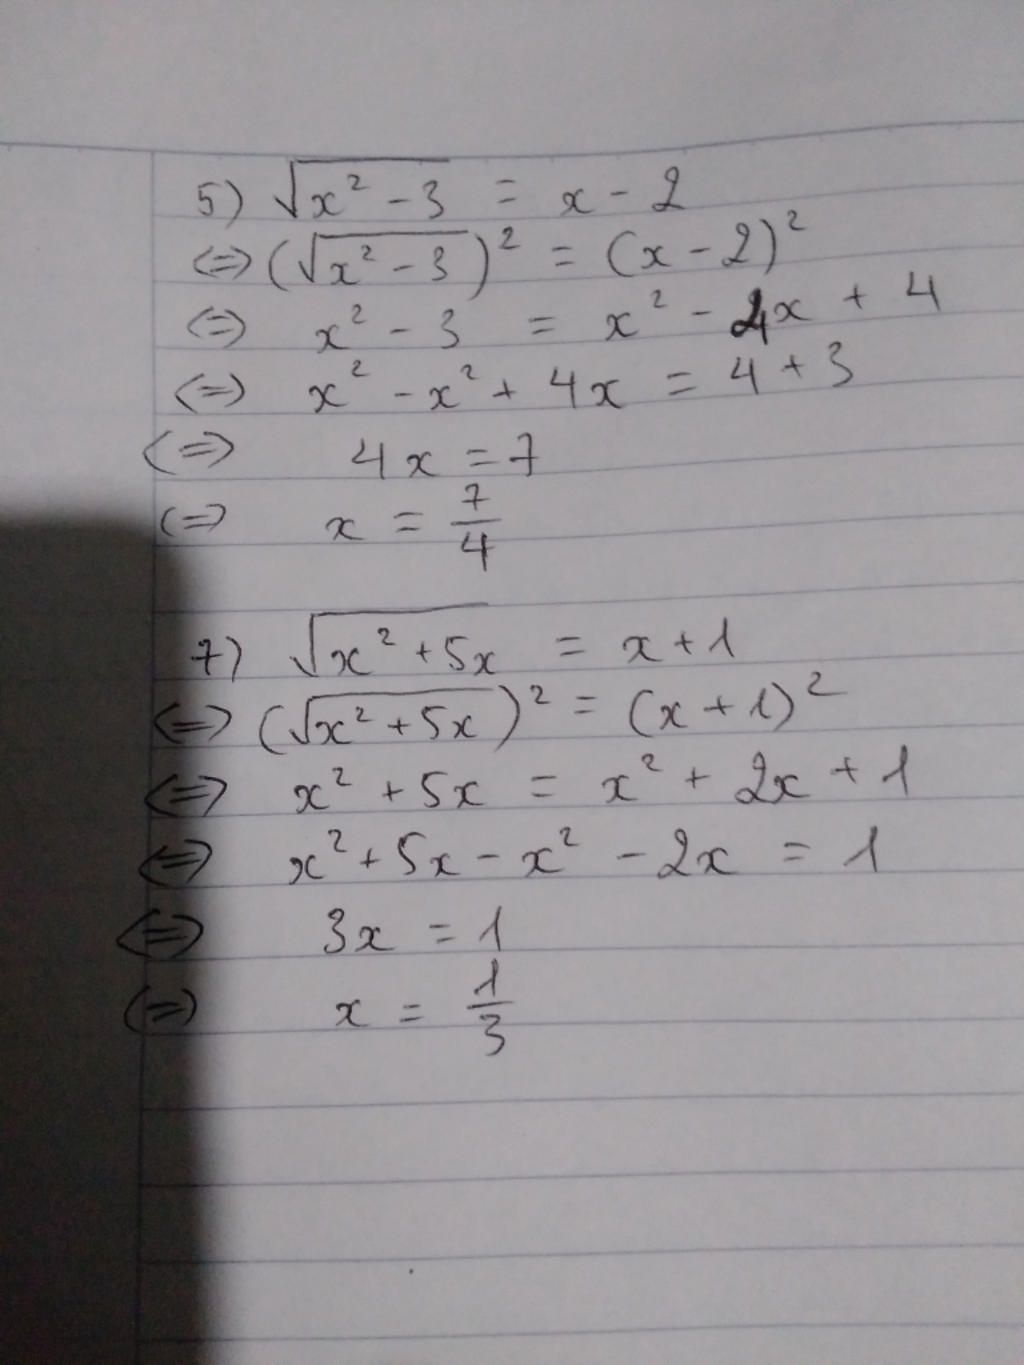 5) √(x² - 3) = x - 2
<=> (√(x² - 3))² = (x - 2)²
<=> x² - 3 = x² - 4x + 4
<=> x² - x² + 4x = 4 + 3
<=> 4x = 7
<=> x = 7/4
7) √(x² + 5x) = x + 1
<=> (√(x² + 5x))² = (x + 1)²
<=> x² + 5x = x² + 2x + 1
<=> x² + 5x - x² - 2x = 1
<=> 3x = 1
<=> x = 1/3